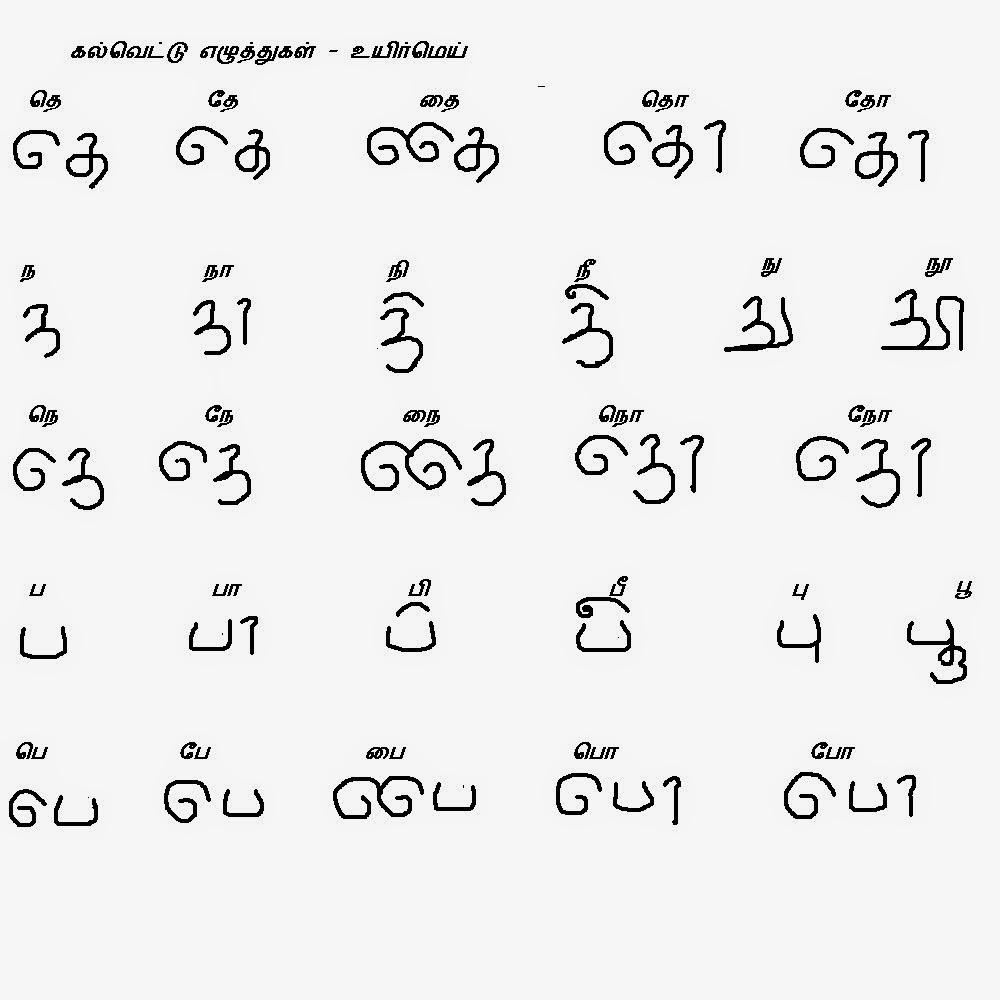 கல்வெட்டு எழுத்துகள் - உயிர்மெய்
தெ தே தை தொ தோ
ந நா நி நீ நு நூ
நெ நே நை நொ நோ
ப பா பி பீ பு பூ
பெ பே பை பொ போ